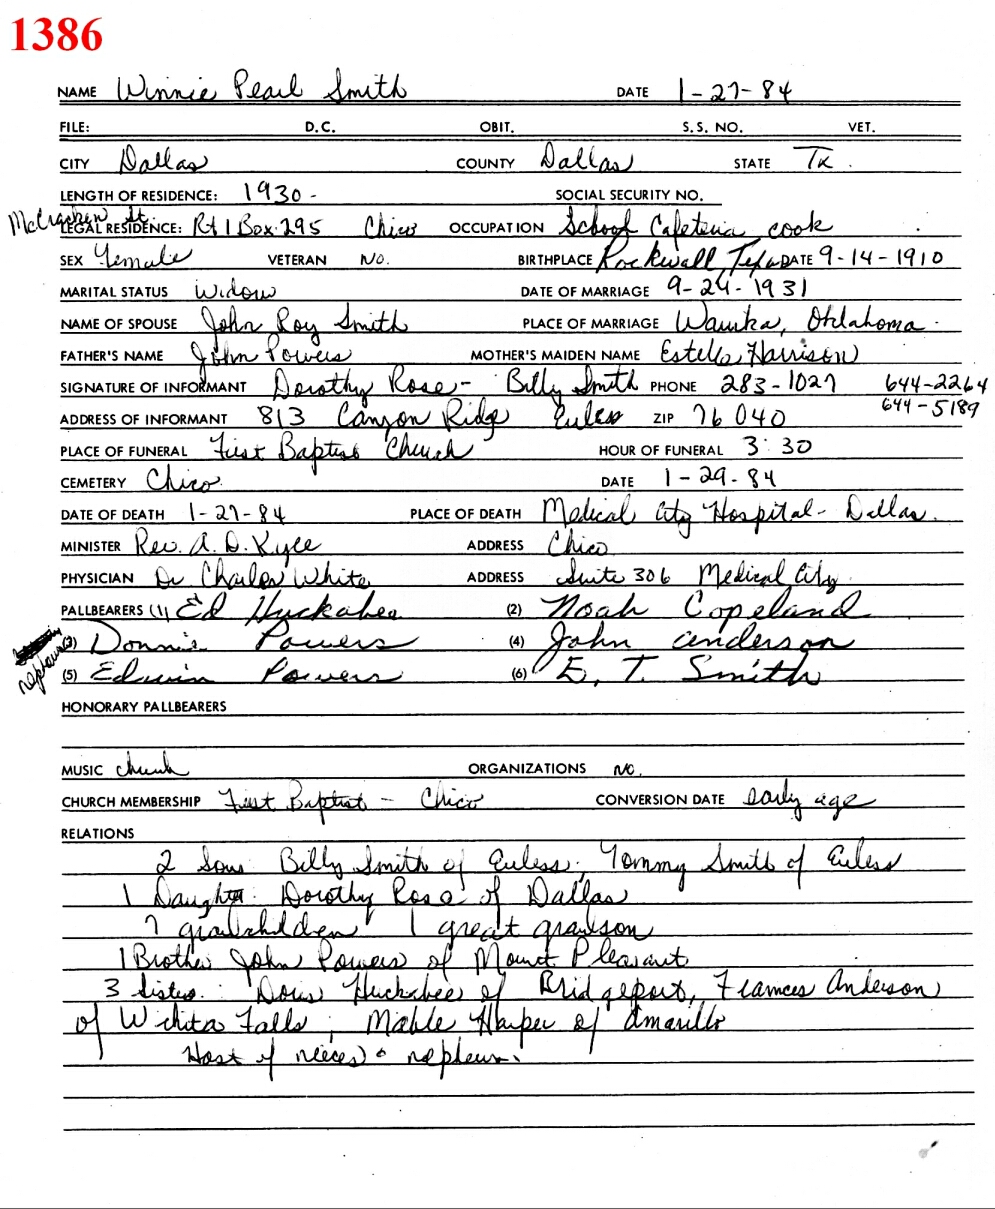 1386
NAME Winnie Pearl Smith DATE 1-27-84
FILE: D.C. OBIT. S.S. NO. VET.
CITY Dallas COUNTY Dallas STATE Tx.
LENGTH OF RESIDENCE: 1930 - SOCIAL SECURITY NO.
McCracken St.
LEGAL RESIDENCE: Rt 1 Box 295 Chico OCCUPATION School Cafeteria cook
SEX Female VETERAN No. BIRTHPLACE Rockwall, Texas DATE 9-14-1910
MARITAL STATUS Widow DATE OF MARRIAGE 9-24-1931
NAME OF SPOUSE John Roy Smith PLACE OF MARRIAGE Waurika, Oklahoma
FATHER'S NAME John Powers MOTHER'S MAIDEN NAME Estella Harrison
SIGNATURE OF INFORMANT Dorothy Rose - Billy Smith PHONE 283-1027 644-2264
644-5189
ADDRESS OF INFORMANT 813 Canyon Ridge Euless ZIP 76040
PLACE OF FUNERAL First Baptist Church HOUR OF FUNERAL 3:30
CEMETERY Chico DATE 1-29-84
DATE OF DEATH 1-27-84 PLACE OF DEATH Medical City Hospital - Dallas.
MINISTER Rev. A. D. Kyle ADDRESS Chico
PHYSICIAN Dr Charles White ADDRESS Suite 306 Medical City
PALLBEARERS (1) Ed Huckabee (2) Noah Copeland
nephews (3) Donnie Powers (4) John Anderson
(5) Edwin Powers (6) E. T. Smith
HONORARY PALLBEARERS
MUSIC church ORGANIZATIONS No.
CHURCH MEMBERSHIP First Baptist - Chico CONVERSION DATE early age
RELATIONS
2 Sons: Billy Smith of Euless; Tommy Smith of Euless
1 Daughter: Dorothy Rose of Dallas
7 grandchildren 1 great grandson
1 Brother John Powers of Mount Pleasant
3 Sisters: Doris Huckabee of Bridgeport, Frances Anderson
of Wichita Falls; Mable Harper of Amarillo
Host of nieces & nephews.